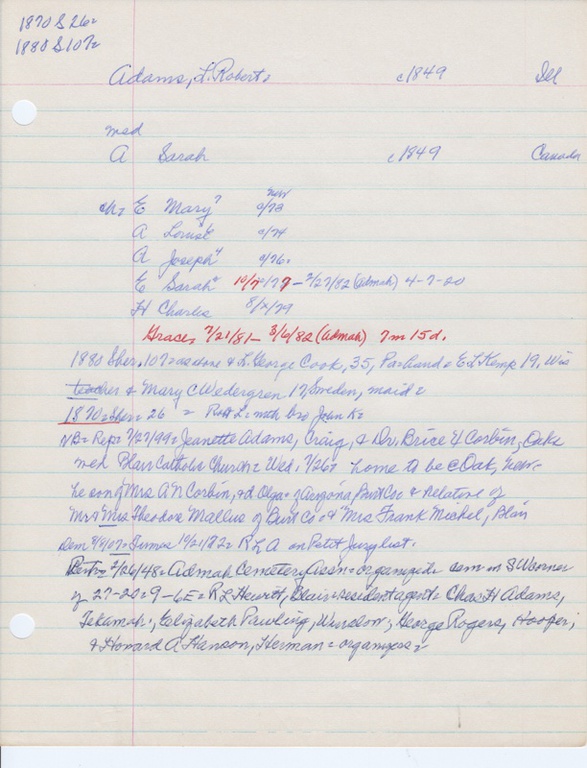 1870 S 26=
1880 S 107=
Adams, L. Robert= c1849 Ill
med
A Sarah c1849 Canada
ch= E Mary 7 c/73 Nebr
A Louise c/74
A Joseph 4 c/76=
E Sarah 10/7/77 - 2/27/82 (Admah) 4-7-20
H Charles 8/x/79
Grace, 7/21/81 - 3/6/82 (Admah) 7m 15d.
1880 Sher. 107= as above & L. George Cook, 35, Pa= hand & E L Kemp 19, Wis
teacher & Mary C Wedergren 17, Sweden, maid=
1870= Sher= 26 = Robt L= with bro John K=
NB= Rep= 7/27/99= Jeanette Adams, Craig, & Dr. Brice H Corbin, Oak=
med Blair Catholic Church= Wed. 7/26= home to be @ Oak, Nebr=
he son of Mrs A N Corbin, & d Olga= of Arizona, Burt Co= & relative of
Mr & Mrs Theodore Mallus of Burt Co= & Mrs Frank Michel, Blair
Dem= Times 10/21/82= R L A on Petit Jury list.
2/26/48= Admah Cemetery Assn= organized= sem on S W corner
of 27-20=9-6E= R L Hewett, Blair= resident agent= Chas H Adams,
Tekamah=, Elizabeth Pawling, Winslow; George Rogers, Hooper,
& Howard A Hanson, Herman= organizers=